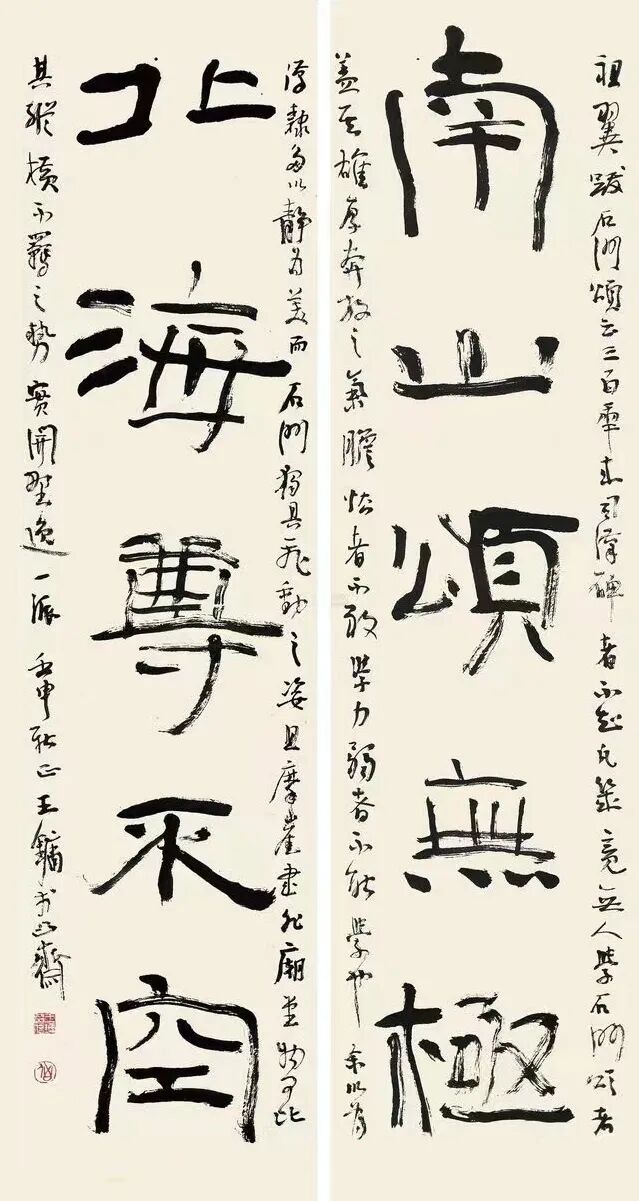 祖翼跋石門頌云三百年來習漢碑者不知凡幾竟無人學石門頌者
南山頌無極
蓋其雄厚奔放之氣膽怯者不敢學力弱者不能學也余以為
漢隸多以靜為美而石門獨具飛動之姿且摩崖書非廟堂物可比
北海尊不空
其縱橫不羈之勢實開野逸一派壬申秋正王鏞於凸齋